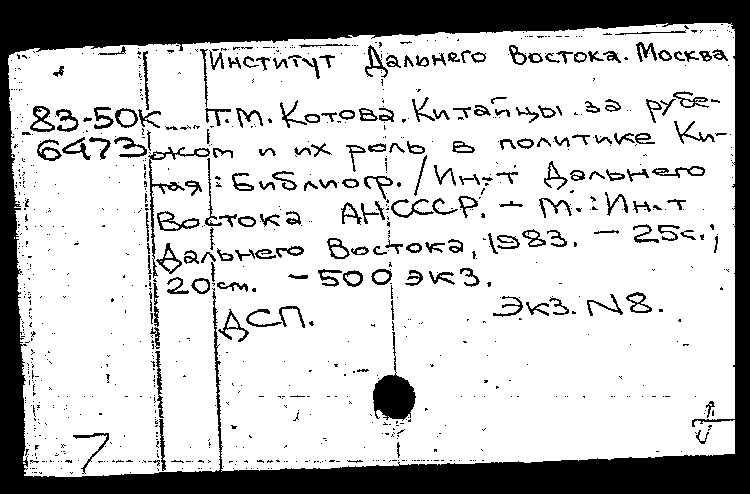 Институт Дальнего Востока. Москва.
83-50к Т.М. Котова. Китайцы за рубе-
6473 жом и их роль в политике Ки-
тая: Библиогр. / Ин-т Дальнего
Востока АН СССР. - М.: Ин-т
Дальнего Востока, 1983. - 25с.;
20 см. - 500 экз.
ДСП. Экз. N8.
7